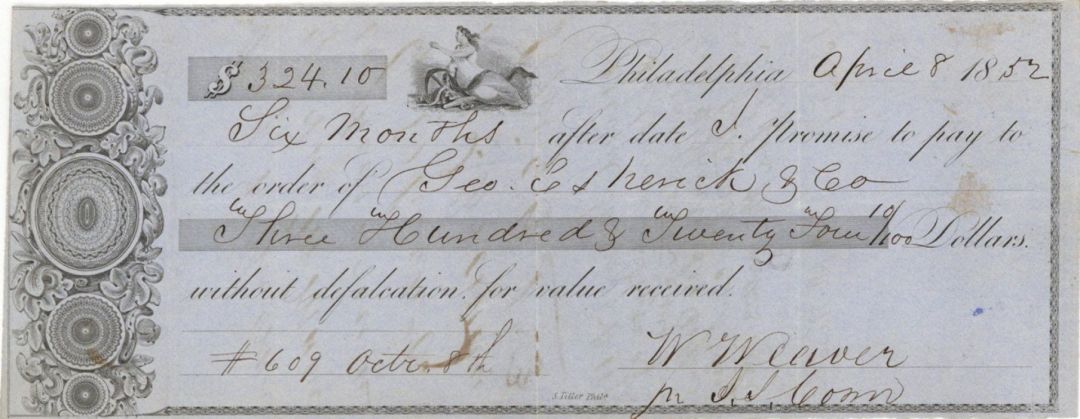 $324.10 Philadelphia April 8 1852
Six months after date I. Promise to pay to
the order of Geo. Esherick & Co
Three Hundred & Twenty Four 10/100 Dollars.
without defalcation. for value received.
#609 Octr. 8th W Weaver
S. Teller Phila
pr